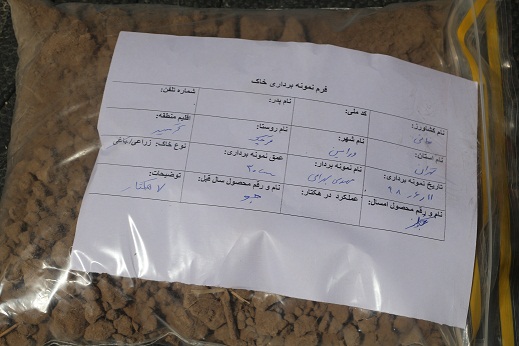 فرم نمونه برداری خاک
نام کشاورز: کد ملی: نام پدر: شماره تلفن:
نام استان: تهران نام شهر: ورامین نام روستا: اقلیم منطقه: گرمسیر
تاریخ نمونه برداری: ۹۸،۶،۱۱ نام نمونه بردار: مهدی عمق نمونه برداری: ۳۰ نوع خاک: زراعی/باغی
نام و رقم محصول امسال: عملکرد در هکتار: نام و رقم محصول سال قبل: جو توضیحات: ۷ هکتار